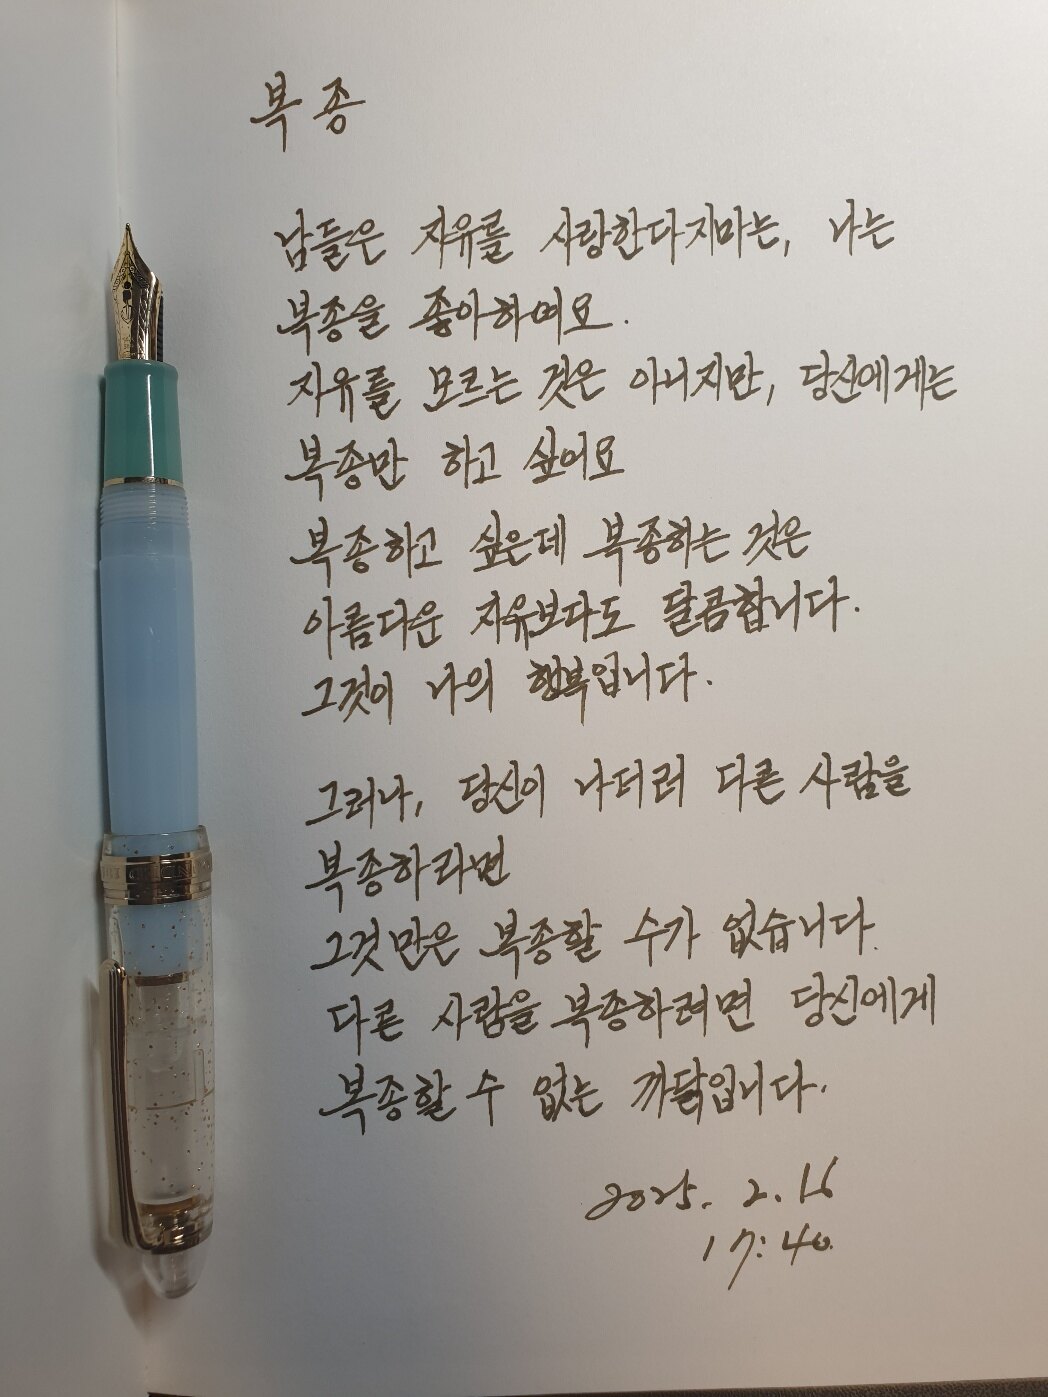 복종
남들은 자유를 사랑한다지마는, 나는
복종을 좋아하여요.
자유를 모르는 것은 아니지만, 당신에게는
복종만 하고 싶어요
복종하고 싶은데 복종하는 것은
아름다운 자유보다도 달콤합니다.
그것이 나의 행복입니다.
그러나, 당신이 나더러 다른 사람을
복종하라면
그것만은 복종할 수가 없습니다.
다른 사람을 복종하려면 당신에게
복종할 수 없는 까닭입니다.
2025. 2. 16
17:40.